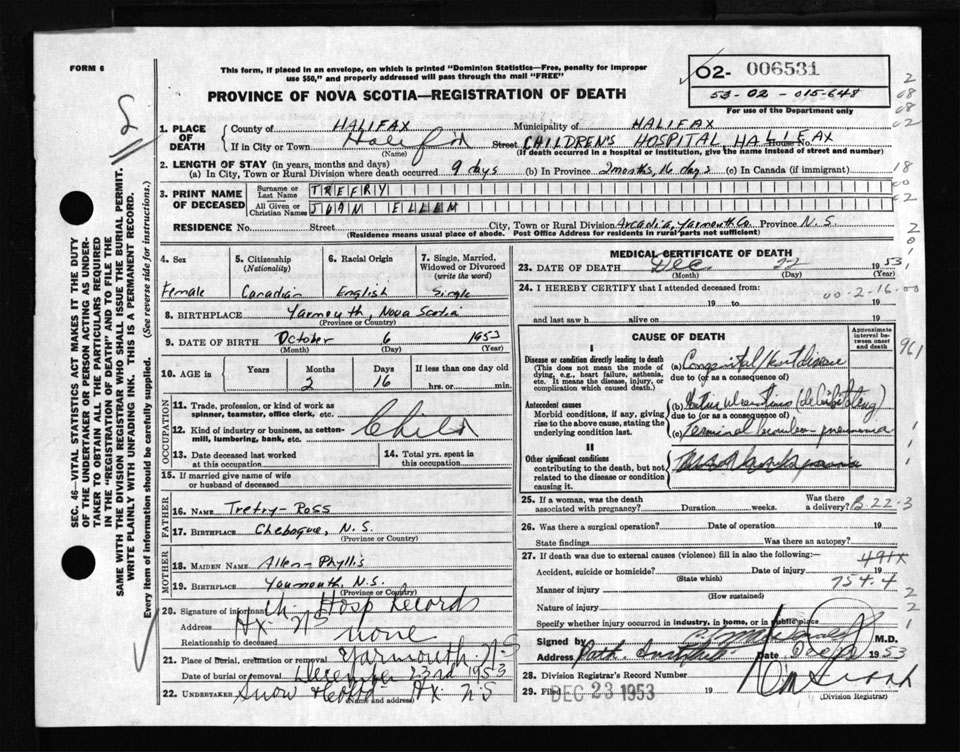 FORM 6
This form, if placed in an envelope, on which is printed "Dominion Statistics—Free, penalty for improper
use $50," and properly addressed will pass through the mail "FREE"
PROVINCE OF NOVA SCOTIA—REGISTRATION OF DEATH
02- 006531
53-02-015-648
For use of the Department only
SEC. 46—VITAL STATISTICS ACT MAKES IT THE DUTY
OF THE UNDERTAKER OR PERSON ACTING AS UNDER-
TAKER TO OBTAIN ALL THE PARTICULARS REQUIRED
IN THE "REGISTRATION OF DEATH" AND TO FILE THE
SAME WITH THE DIVISION REGISTRAR WHO SHALL ISSUE THE BURIAL PERMIT.
WRITE PLAINLY WITH UNFADING INK. THIS IS A PERMANENT RECORD.
Every item of information should be carefully supplied. (See reverse side for instructions.)
1. PLACE OF DEATH
County of HALIFAX Municipality of HALIFAX
If in City or Town Halifax Street CHILDRENS HOSPITAL, HALIFAX House No.
(Name) (If death occurred in a hospital or institution, give the name instead of street and number)
2. LENGTH OF STAY (in years, months and days)
(a) In City, Town or Rural Division where death occurred 9 days (b) In Province 2 months, 16 days (c) In Canada (if immigrant)
3. PRINT NAME OF DECEASED
Surname or Last Name TREFRY
All Given or Christian Names JOAN ELLEN
RESIDENCE No. Street City, Town or Rural Division Arcadia, Yarmouth Co Province N.S.
(Residence means usual place of abode. Post Office Address for residents in rural parts not sufficient)
4. Sex Female
5. Citizenship (Nationality) Canadian
6. Racial Origin English
7. Single, Married, Widowed or Divorced (write the word) Single
8. BIRTHPLACE Yarmouth, Nova Scotia
(Province or Country)
9. DATE OF BIRTH October 6 1953
(Month) (Day) (Year)
10. AGE is Years Months 2 Days 16 If less than one day old
hrs. or min.
OCCUPATION
11. Trade, profession, or kind of work as
spinner, teamster, office clerk, etc.
12. Kind of industry or business, as cotton-
mill, lumbering, bank, etc.
Child
13. Date deceased last worked
at this occupation
14. Total yrs. spent in
this occupation
15. If married give name of wife
or husband of deceased
FATHER
16. NAME Trefry- Ross
17. BIRTHPLACE Chebogue, N.S.
(Province or Country)
MOTHER
18. MAIDEN NAME Allen- Phyllis
19. BIRTHPLACE Yarmouth, N.S.
(Province or Country)
20. Signature of informant Ch Hosp Records
Address Hx NS
Relationship to deceased none
21. Place of burial, cremation or removal Yarmouth NS
Date of burial or removal December 23rd 1953
22. UNDERTAKER Snow & Co Ltd Hx NS
(Name and address)
MEDICAL CERTIFICATE OF DEATH
23. DATE OF DEATH Dec 22 1953
(Month) (Day) (Year)
24. I HEREBY CERTIFY that I attended deceased from:
19 to 19
00-2-16-00
and last saw h alive on 19
CAUSE OF DEATH
Approximate interval between onset and death
I
Disease or condition directly leading to death
(This does not mean the mode of
dying, e.g., heart failure, asthenia,
etc. It means the disease, injury, or
complication which caused death.)
(a) Congenital heart disease
due to (or as a consequence of)
Antecedent causes
Morbid conditions, if any, giving
rise to the above cause, stating the
underlying condition last.
(b)
due to (or as a consequence of)
(c) terminal broncho-pneumonia
II
Other significant conditions
contributing to the death, but not
related to the disease or condition
causing it.
25. If a woman, was the death
associated with pregnancy? Duration weeks. Was there a delivery?
B.22-3
26. Was there a surgical operation? Date of operation 19
State findings Was there an autopsy?
27. If death was due to external causes (violence) fill in also the following:
491X
Accident, suicide or homicide? Date of injury 19
(State which)
754.4
Manner of injury
(How sustained)
Nature of injury
Specify whether injury occurred in industry, in home, or in public place
Signed by M.D.
Address Path. Institute Date Dec 1953
28. Division Registrar's Record Number
29. Filed DEC 23 1953 19
(Division Registrar)